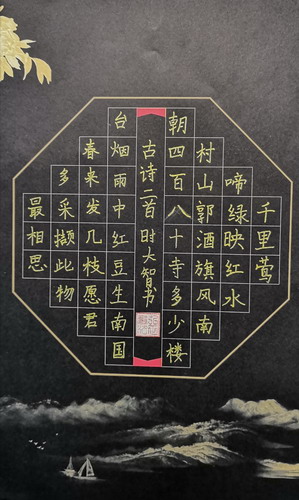 千里莺
啼绿映红水
村山郭酒旗风南
朝四百八十寺多少楼
古诗二首 时大智书
台烟雨中红豆生南国
春来发几枝愿君
多采撷此物
最相思